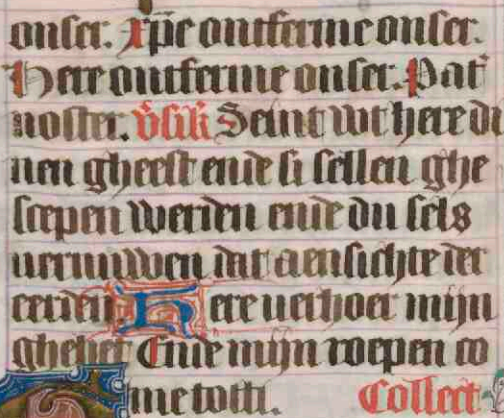 onser. xp̄e ontferme onser.
Here ontferme onser. Pat̄
noster. v̄sik̄ Seint wt here di
nen gheest ende si sellen ghe
scepen werden ende du sels
vernuwen dat aensichte der
eerden Here verhoer mijn
ghebet Ende mijn roepen co
me tot ti. Collect